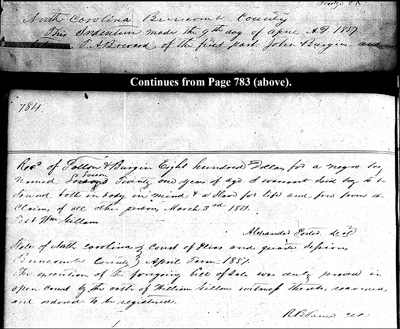 North Carolina Buncombe County
This Indenture made the 9th day of April A.D. 1857
of the first part John Burgin and
Continues from Page 783 (above).
784
Recd of Fallow & Burgin Eight hundred Dollars for a negro boy
named twenty one years of age I warrant said boy to be
sound both in body in mind & a slave for life and free from the
claims of all other persons March 3rd 1851
Test Wm Gillam
Alexander Porter Seal
State of North Carolina } Court of Pleas and quarter Sessions
Buncombe County } April Term 1857
The execution of the foregoing bill of Sale was duly proved in
open court by the oath of William Gillam witness thereto
and ordered to be registered.